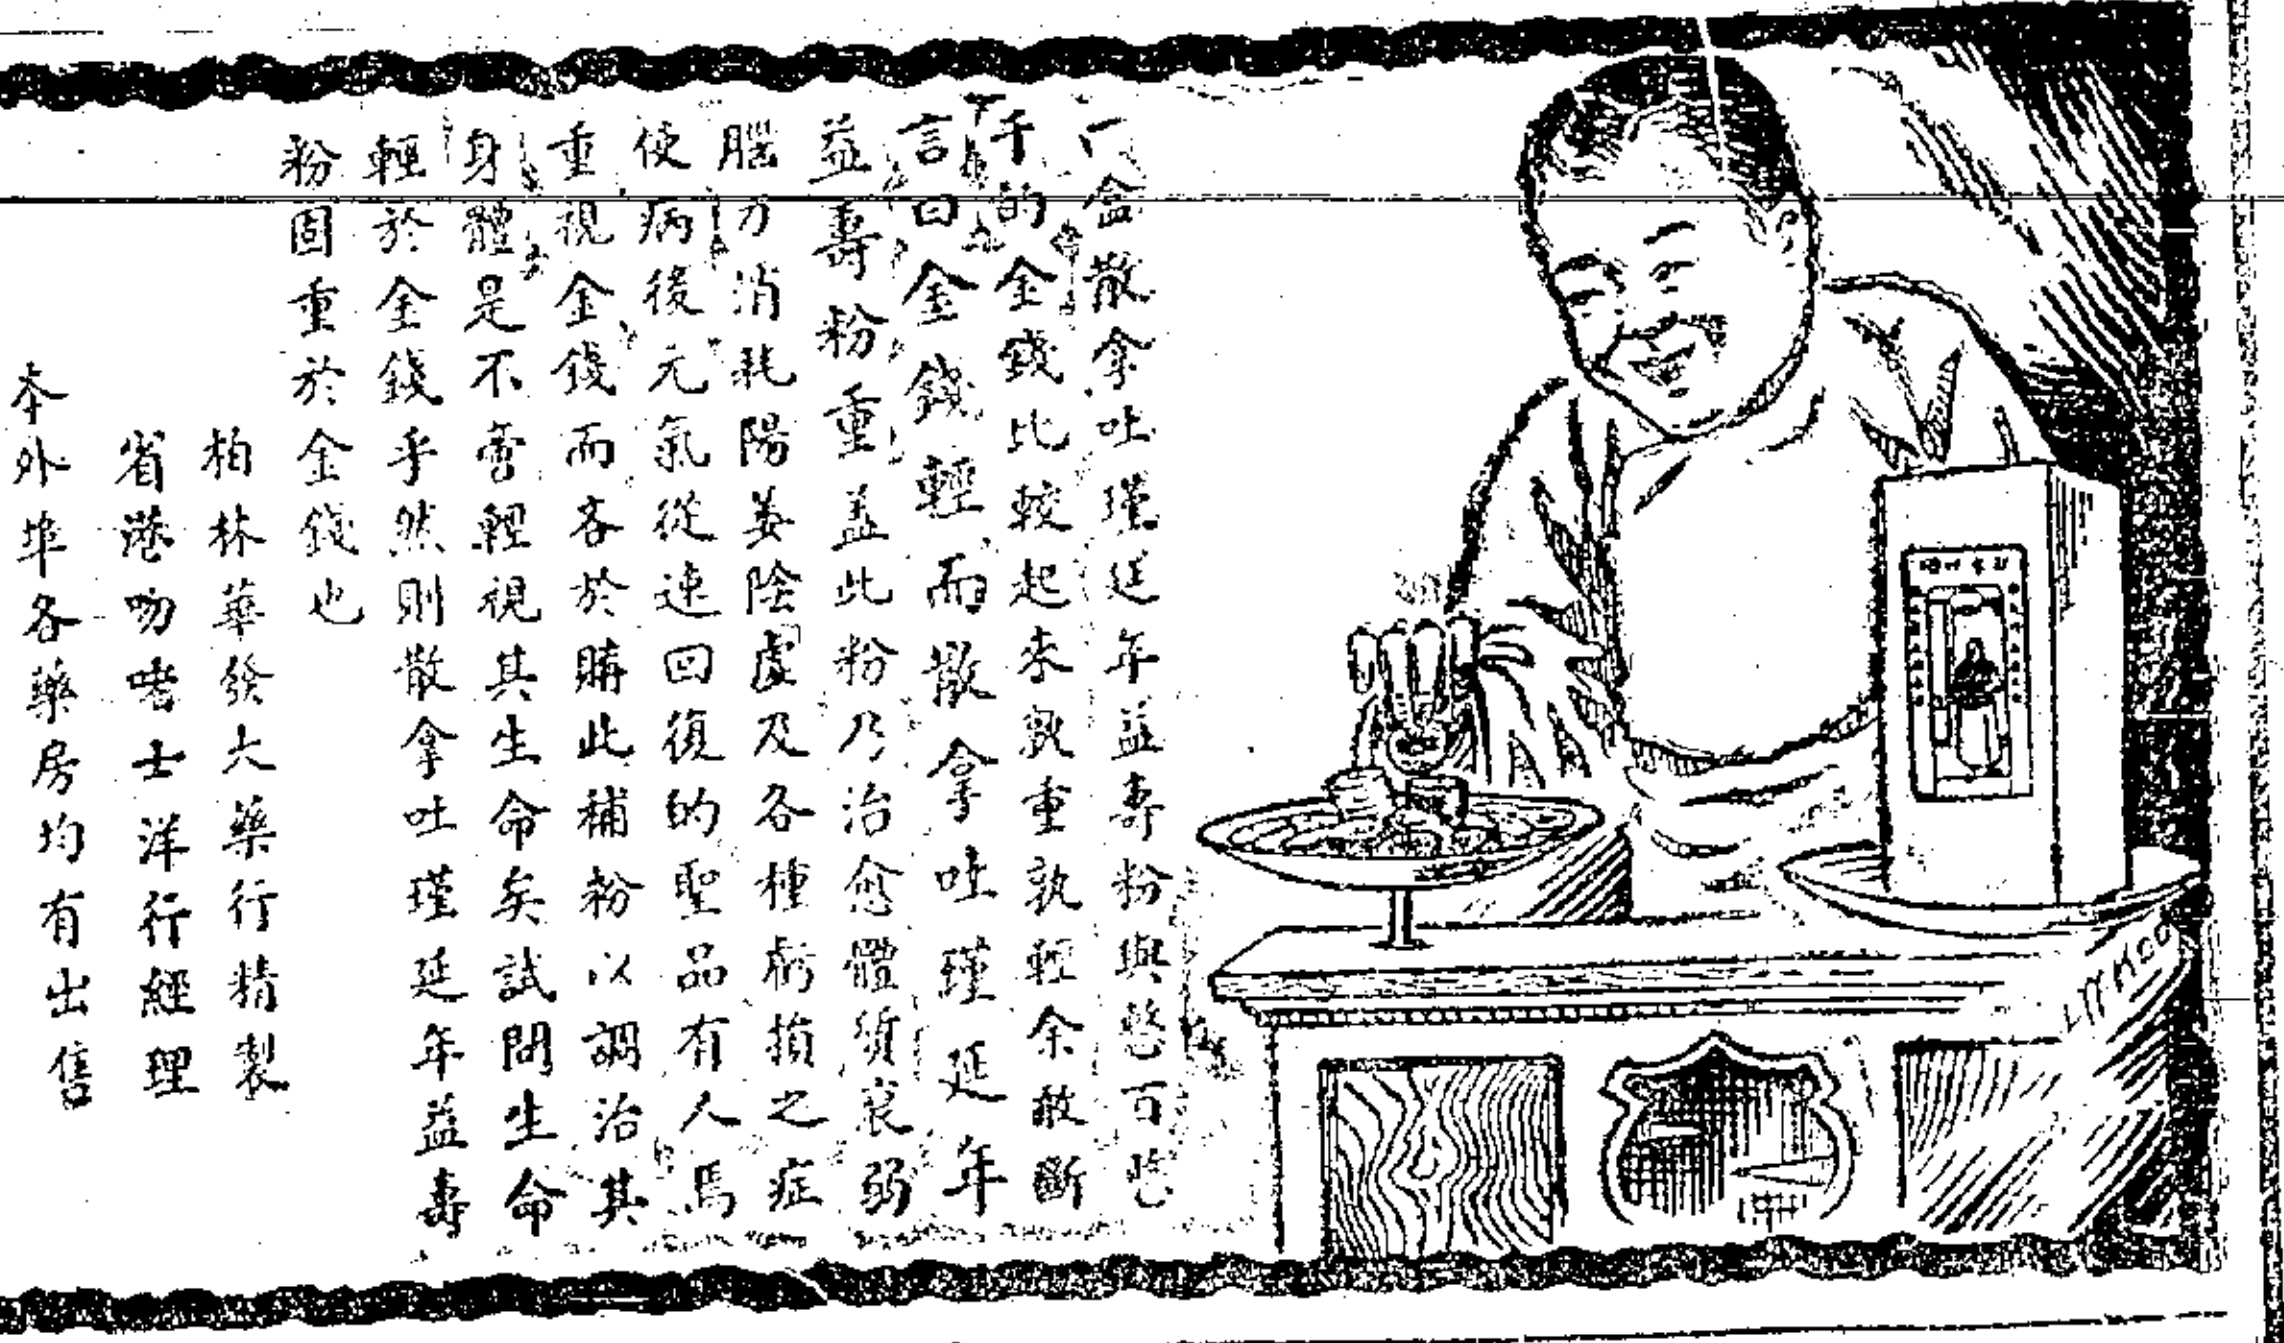 一盒散拿吐瑾延年益壽粉與整百整
千的金錢比較起來孰重孰輕余敢斷
言曰金錢輕而散拿吐瑾延年
益壽粉重蓋此粉乃治愈體質衰弱
腦力消耗陽萎陰虛及各種虧損之症
使病後元氣從速回復的聖品有人焉
重視金錢而吝於購此補粉以調治其
身體是不啻輕視其生命矣試問生命
輕於金錢乎然則散拿吐瑾延年益壽
粉固重於金錢也
柏林華發大藥行精製
省港吻喏士洋行經理
本外埠各藥房均有出售